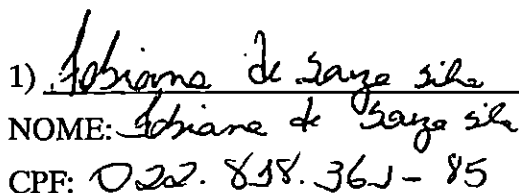 1) Fabiana de Souza Silva
NOME: Fabiana de Souza Silva
CPF: 022.818.361-85